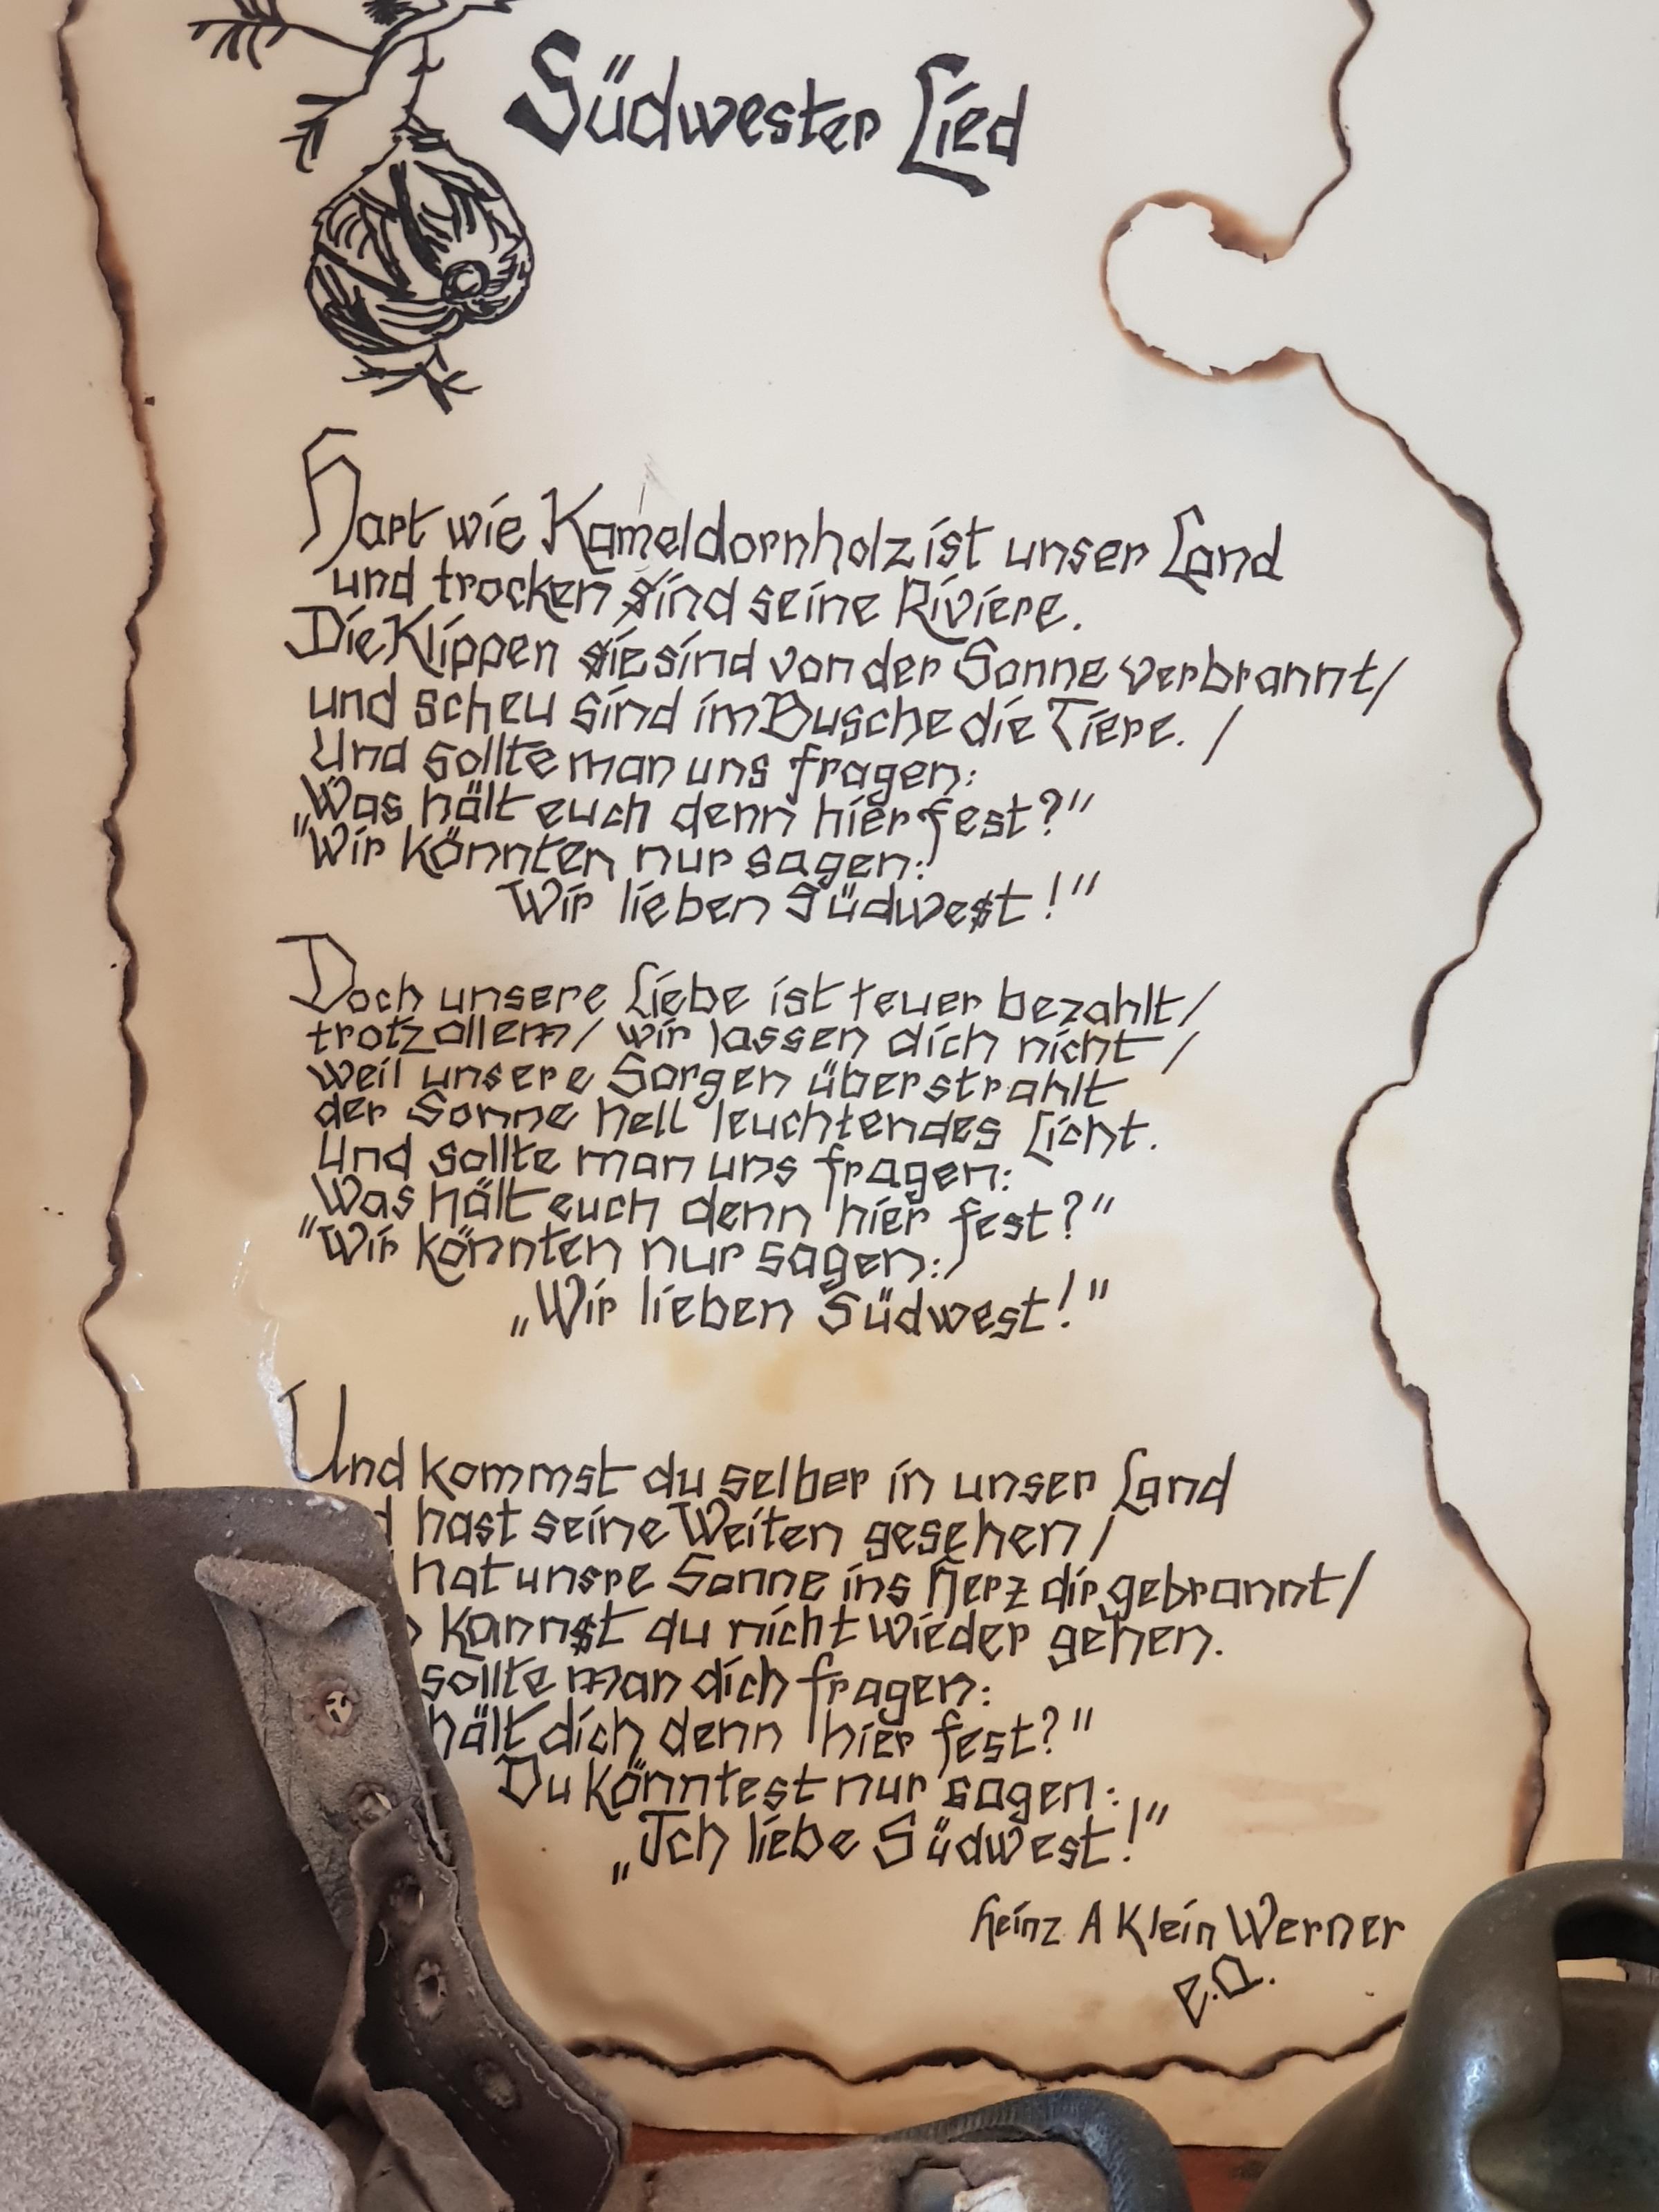 Südwester Lied
Hart wie Kameldornholz ist unser Land
und trocken sind seine Riviere.
Die Klippen sie sind von der Sonne verbrannt/
und scheu sind im Busche die Tiere. /
Und sollte man uns fragen:
„Was hält euch denn hier fest?"
"Wir könnten nur sagen:
Wir lieben Südwest!"
Doch unsere Liebe ist teuer bezahlt/
trotz allem/ wir lassen dich nicht/
weil unsere Sorgen überstrahlt
der Sonne hell leuchtendes Licht.
Und sollte man uns fragen:
„Was hält euch denn hier fest?"
"Wir könnten nur sagen:
„Wir lieben Südwest!"
Und kommst du selber in unser Land
hast seine Weiten gesehen/
hat unsre Sonne ins Herz dir gebrannt/
kannst du nicht wieder gehen.
sollte man dich fragen:
hält dich denn hier fest?"
Du könntest nur sagen:
„Ich liebe Südwest!"
Heinz A Klein Werner